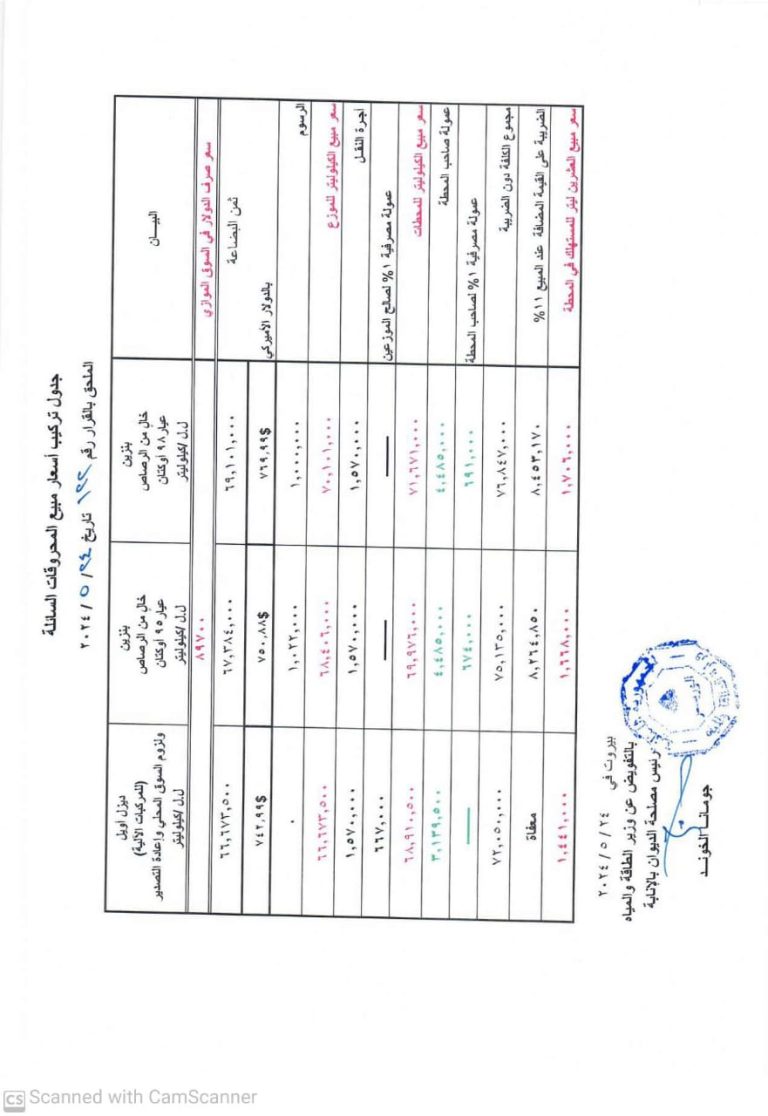 جدول تركيب أسعار مبيع المحروقات السائلة
الملحق بالقرار رقم ١٢٢ تاريخ ٢٤ / ٥ / ٢٠٢٤
البيــان
بنزين
خالٍ من الرصاص
عيار ٩٨ أوكتان
ل.ل/كيلوليتر
بنزين
خالٍ من الرصاص
عيار ٩٥ أوكتان
ل.ل/كيلوليتر
ديزل أويل
(للمركبات الآلية)
ولزوم السوق المحلي وإعادة التصدير
ل.ل/كيلوليتر
سعر صرف الدولار في السوق الموازي ٨٩٧٠٠
ثمن البضاعة ٦٩,١٠١,٠٠٠ ٦٧,٣٨٤,٠٠٠ ٦٦,٦٧٣,٥٠٠
بالدولار الأميركي ٧٦٩,٩٩$ ٧٥٠,٨٨$ ٧٤٢,٩٩$
الرسوم ١,٠٠٠,٠٠٠ ١,٠٢٢,٠٠٠ ٠
سعر مبيع الكيلوليتر للموزع ٧٠,١٠١,٠٠٠ ٦٨,٤٠٦,٠٠٠ ٦٦,٦٧٣,٥٠٠
أجرة النقل ١,٥٧٠,٠٠٠ ١,٥٧٠,٠٠٠ ١,٥٧٠,٠٠٠
عمولة مصرفية ١% لصالح الموزعين — — ٦٦٧,٠٠٠
سعر مبيع الكيلوليتر للمحطات ٧١,٦٧١,٠٠٠ ٦٩,٩٧٦,٠٠٠ ٦٨,٩١٠,٥٠٠
عمولة صاحب المحطة ٤,٤٨٥,٠٠٠ ٤,٤٨٥,٠٠٠ ٣,١٣٩,٥٠٠
عمولة مصرفية ١% لصاحب المحطة ٦٩١,٠٠٠ ٦٧٤,٠٠٠ —
مجموع الكلفة دون الضريبة ٧٦,٨٤٧,٠٠٠ ٧٥,١٣٥,٠٠٠ ٧٢,٠٥٠,٠٠٠
الضريبة على القيمة المضافة عند المبيع ١١% ٨,٤٥٣,١٧٠ ٨,٢٦٤,٨٥٠ معفاة
سعر مبيع العشرين ليتر للمستهلك في المحطة ١,٧٠٦,٠٠٠ ١,٦٦٨,٠٠٠ ١,٤٤١,٠٠٠
بيروت في ٢٤ / ٥ / ٢٠٢٤
بالتفويض عن وزير الطاقة والمياه
رئيس مصلحة الديوان بالإنابة
جومانا الخونـد
CS Scanned with CamScanner